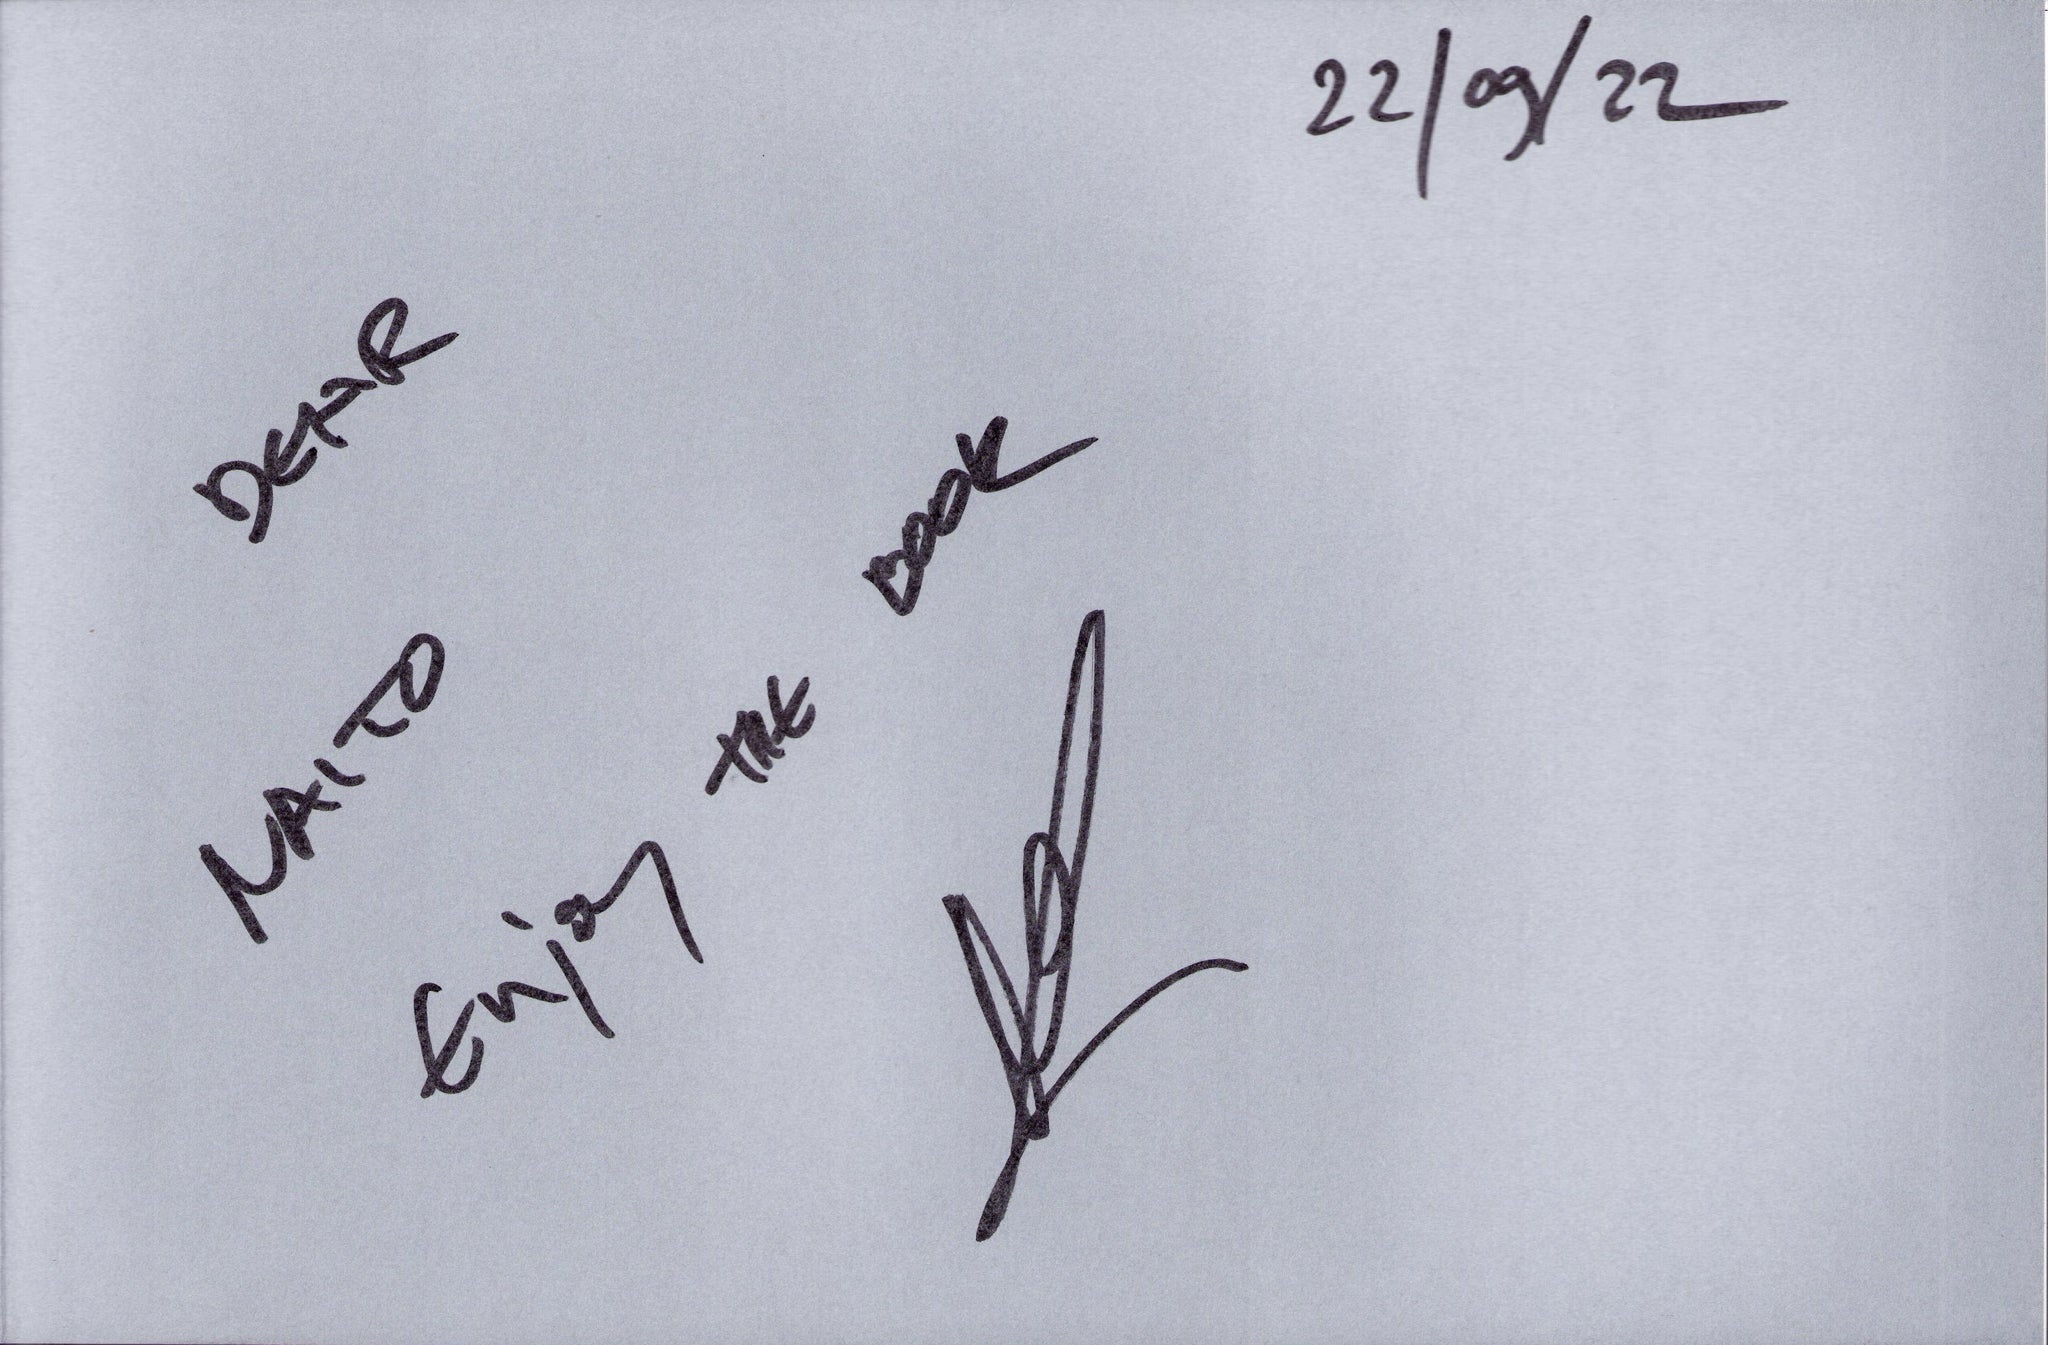 22/09/22
DEAR
NAITO
Enjoy THE BOOK